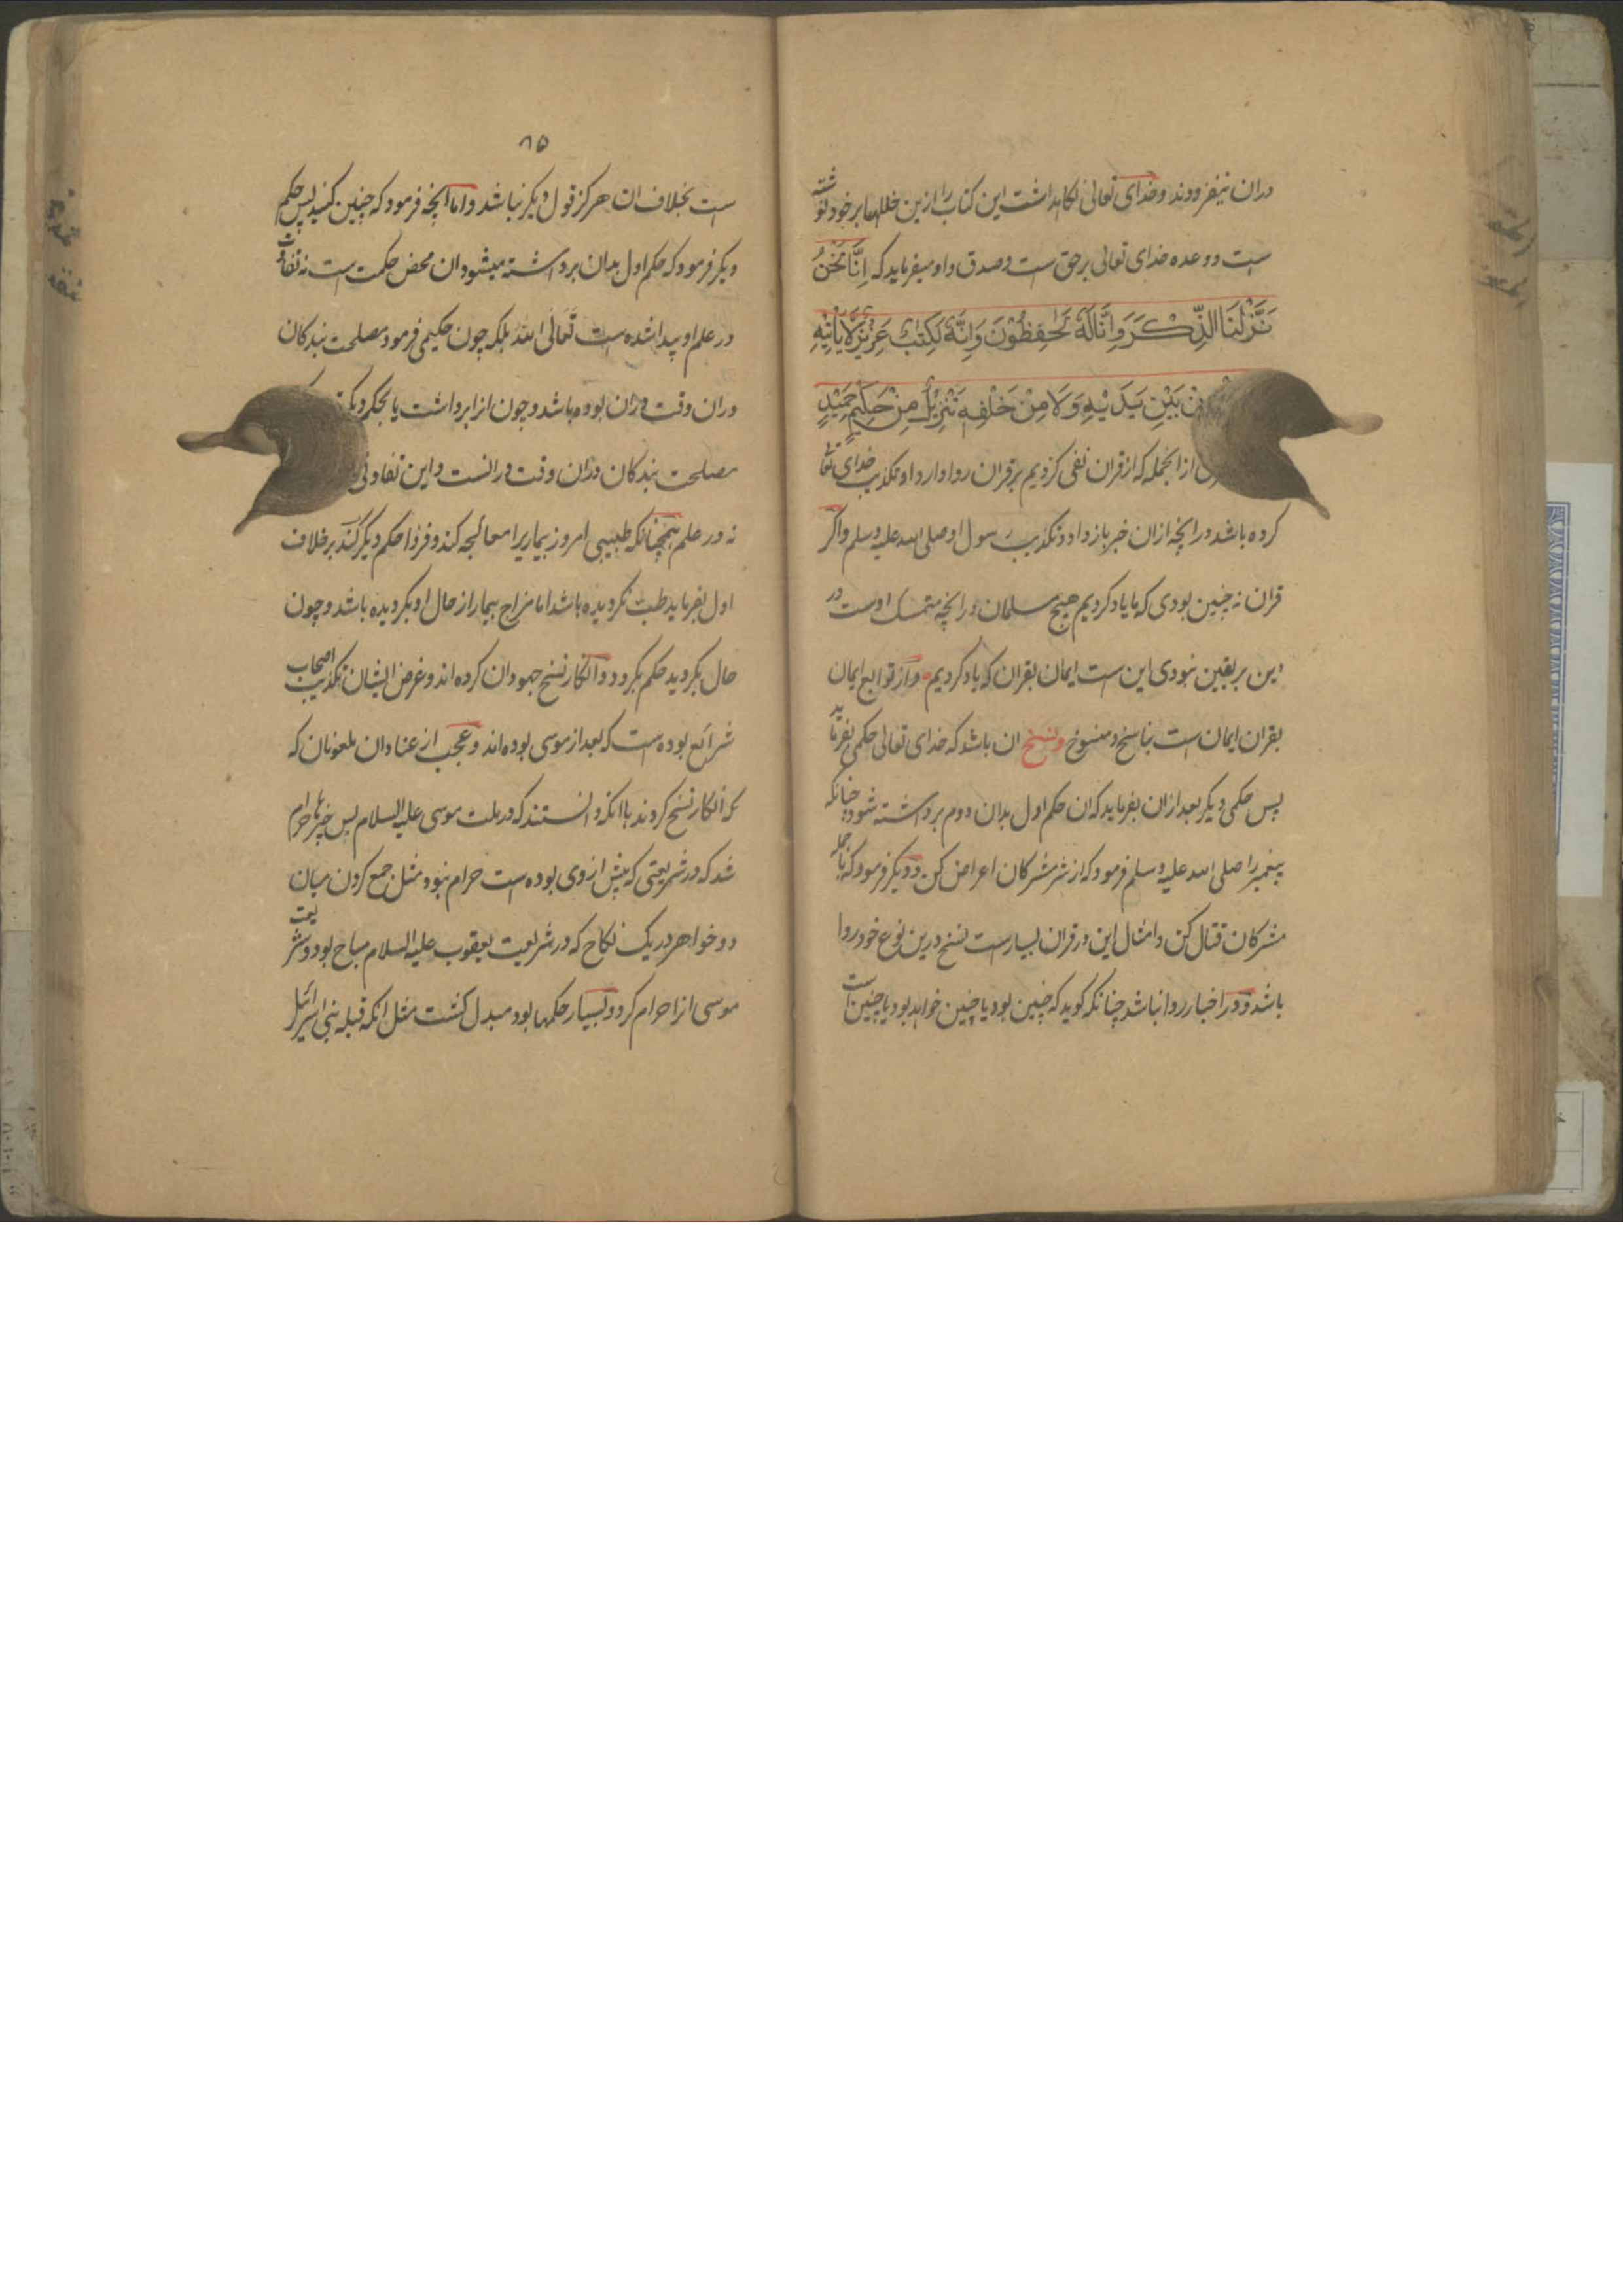 دران نیفزودند و خدای تعالی نکاهداشت این کتاب را ازین خللها بر خود نوشته
ست و وعده خدای تعالی بر حق ست و صدق و او میفرماید که اِنَّا نَحْنُ
نَزَّلْنَا الذِّكْرَ وَاِنَّا لَهُ لَحٰفِظُوْنَ وَاِنَّهُ لَكِتٰبٌ عَزِيْزٌ لَا يَأْتِيْهِ
مِنْ بَيْنِ يَدَيْهِ وَلَا مِنْ خَلْفِهٖ تَنْزِيْلٌ مِنْ حَكِيْمٍ حَمِيْدٍ
ازانجمله که از قران نفی کردیم بر قران روا دارد او تکذیب خدای تعا
کرده باشد در انچه ازان خبر باز داد و تکذیب رسول او صلی الله علیه وسلم واکر
قران نه چنین بودی که ما یاد کردیم هیچ مسلمان در انچه متمسک اوست در
دین بر یقین نبودی این ست ایمان بقران که یاد کردیم و از توابع ایمان
بقران ایمان ست بناسخ و منسوخ و نسخ ان باشد که خدای تعالی حکمی بفرماید
پس حکمی دیکر بعد ازان بفرماید که ان حکم اول بدان دوم برداشته شود چنانکه
پیغمبر را صلی الله علیه وسلم فرمود که از شر مشرکان اعراض کن و دیکر فرمود که با جمله
مشرکان قتال کن و امثال این در قران بسیارست نسخ درین نوع خود روا
باشد و در اخبار روا نباشد چنانکه کوید که چنین بود یا چنین خواهد بود یا چنین است
۸۵
ست بخلاف ان هرکز قول دیکر نباشد و اما انچه فرمود که چنین کنید پس حکم
دیکر فرمود که حکم اول بدان برداشته میشود ان محض حکمت ست نه تفاوت
در علم او پیدا شده ست تَعَالَی اللّٰه بلکه چون حکیمی فرمود مصلحت بندکان
دران وقت دران بوده باشد و چون انرا برداشت یا بحکم دیکر
مصلحت بندکان دران وقت در انست و این تفاوتی
نه در علم همچنانکه طبیبی امروز بیماریرا معالجه کند و فردا حکم دیکر کند بر خلاف
اول بفرماید طب نکردیده باشد اما مزاج بیمار از حال او بکردیده باشد و چون
حال بکردید حکم بکردد و انکار نسخ جهودان کرده اند و غرض ایشان تکذیب اصحاب
شرائع بوده ست که بعد از موسی بوده اند و عجب از عنادان ملعونان که
که انکار نسخ کردند با انکه دانستند که در ملت موسی علیه السلام بس چیزها حرام
شد که در شریعتی که پیش ازوی بوده ست حرام نبود مثل جمع کردن میان
دو خواهر در یک نکاح که در شریعت یعقوب علیه السلام مباح بود و شریعت
موسی انرا حرام کرد و بسیار حکمها بود مبدل کشت مثل انکه قبله بنی اسرائیل